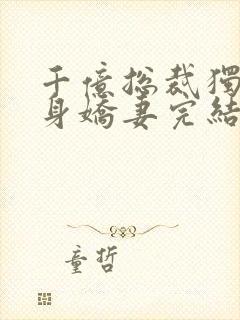 千億总裁獨
身嬌妻完結
童哲